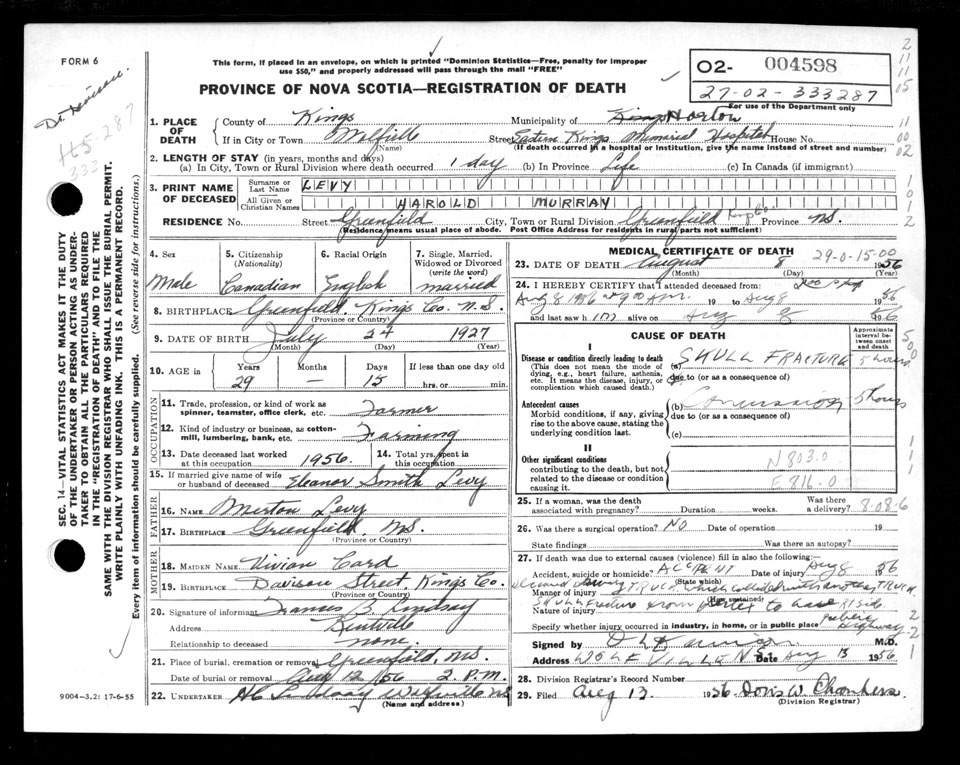 FORM 6
This form, if placed in an envelope, on which is printed "Dominion Statistics—Free, penalty for improper
use $50," and properly addressed will pass through the mail "FREE"
02- 004598
27-02-333287
For use of the Department only
PROVINCE OF NOVA SCOTIA—REGISTRATION OF DEATH
1. PLACE OF DEATH
County of Kings Municipality of Kings Horton
If in City or Town Wolfville Street Eastern Kings Memorial Hospital House No.
(Name) (If death occurred in a hospital or institution, give the name instead of street and number)
2. LENGTH OF STAY (in years, months and days)
(a) In City, Town or Rural Division where death occurred 1 day (b) In Province Life (c) In Canada (if immigrant)
3. PRINT NAME OF DECEASED
Surname or Last Name LEVY
All Given or Christian Names HAROLD MURRAY
RESIDENCE No. Street Greenfield City, Town or Rural Division Greenfield Kings Co. Province N.S.
(Residence means usual place of abode. Post Office Address for residents in rural parts not sufficient)
4. Sex
Male
5. Citizenship
(Nationality)
Canadian
6. Racial Origin
English
7. Single, Married,
Widowed or Divorced
(write the word)
married
8. BIRTHPLACE Greenfield, Kings Co. N.S.
(Province or Country)
9. DATE OF BIRTH July 24 1927
(Month) (Day) (Year)
10. AGE in Years Months Days If less than one day old
29 — 15 hrs. or min.
OCCUPATION
11. Trade, profession, or kind of work as
spinner, teamster, office clerk, etc. Farmer
12. Kind of industry or business, as cotton-
mill, lumbering, bank, etc. Farming
13. Date deceased last worked
at this occupation 1956.
14. Total yrs. spent in
this occupation
15. If married give name of wife
or husband of deceased Eleanor Smith Levy
FATHER
16. NAME Merton Levy
17. BIRTHPLACE Greenfield, N.S.
(Province or Country)
MOTHER
18. MAIDEN NAME Vivian Card
19. BIRTHPLACE Davison Street Kings Co.
(Province or Country)
20. Signature of informant Frances B. Lindsay
Address Kentville
Relationship to deceased none.
21. Place of burial, cremation or removal Greenfield, N.S.
Date of burial or removal Aug 12/56 2. P.M.
22. UNDERTAKER
(Name and address)
MEDICAL CERTIFICATE OF DEATH
29-0-15-00
23. DATE OF DEATH August 8 1956
(Month) (Day) (Year)
24. I HEREBY CERTIFY that I attended deceased from:
Aug 8 1956 at 9 00 AM. 19 to Aug 8 1956
and last saw him alive on Aug 8 56
CAUSE OF DEATH
Approximate interval between onset and death
I
Disease or condition directly leading to death
(This does not mean the mode of
dying, e.g., heart failure, asthenia,
etc. It means the disease, injury, or
complication which caused death.)
(a) SKULL FRACTURE 5 hours
due to (or as a consequence of)
Antecedent causes
Morbid conditions, if any, giving
rise to the above cause, stating the
underlying condition last.
(b) Concussion 5 hours
due to (or as a consequence of)
(c)
II
Other significant conditions
contributing to the death, but not
related to the disease or condition
causing it.
N803.0
E816.0
25. If a woman, was the death
associated with pregnancy? Duration weeks. Was there a delivery? 8-08-6
26. Was there a surgical operation? NO Date of operation 19
State findings Was there an autopsy?
27. If death was due to external causes (violence) fill in also the following:
Accident, suicide or homicide? ACCIDENT Date of injury Aug 8 1956
(State which)
Manner of injury TRUCK which collided TRUCK
(How sustained)
Nature of injury Skull fracture from vertex to base
Specify whether injury occurred in industry, in home, or in public place Public Highway
Signed by M.D.
Address WOLFVILLE N.S. Date Aug 13 1956
28. Division Registrar's Record Number
29. Filed Aug 13 1956 Doris W. Chambers
(Division Registrar)
SEC. 14—VITAL STATISTICS ACT MAKES IT THE DUTY
OF THE UNDERTAKER OR PERSON ACTING AS UNDER-
TAKER TO OBTAIN ALL THE PARTICULARS REQUIRED
IN THE "REGISTRATION OF DEATH" AND TO FILE THE
SAME WITH THE DIVISION REGISTRAR WHO SHALL ISSUE THE BURIAL PERMIT.
WRITE PLAINLY WITH UNFADING INK. THIS IS A PERMANENT RECORD.
Every item of information should be carefully supplied. (See reverse side for instructions.)
9004-3,2: 17-6-55